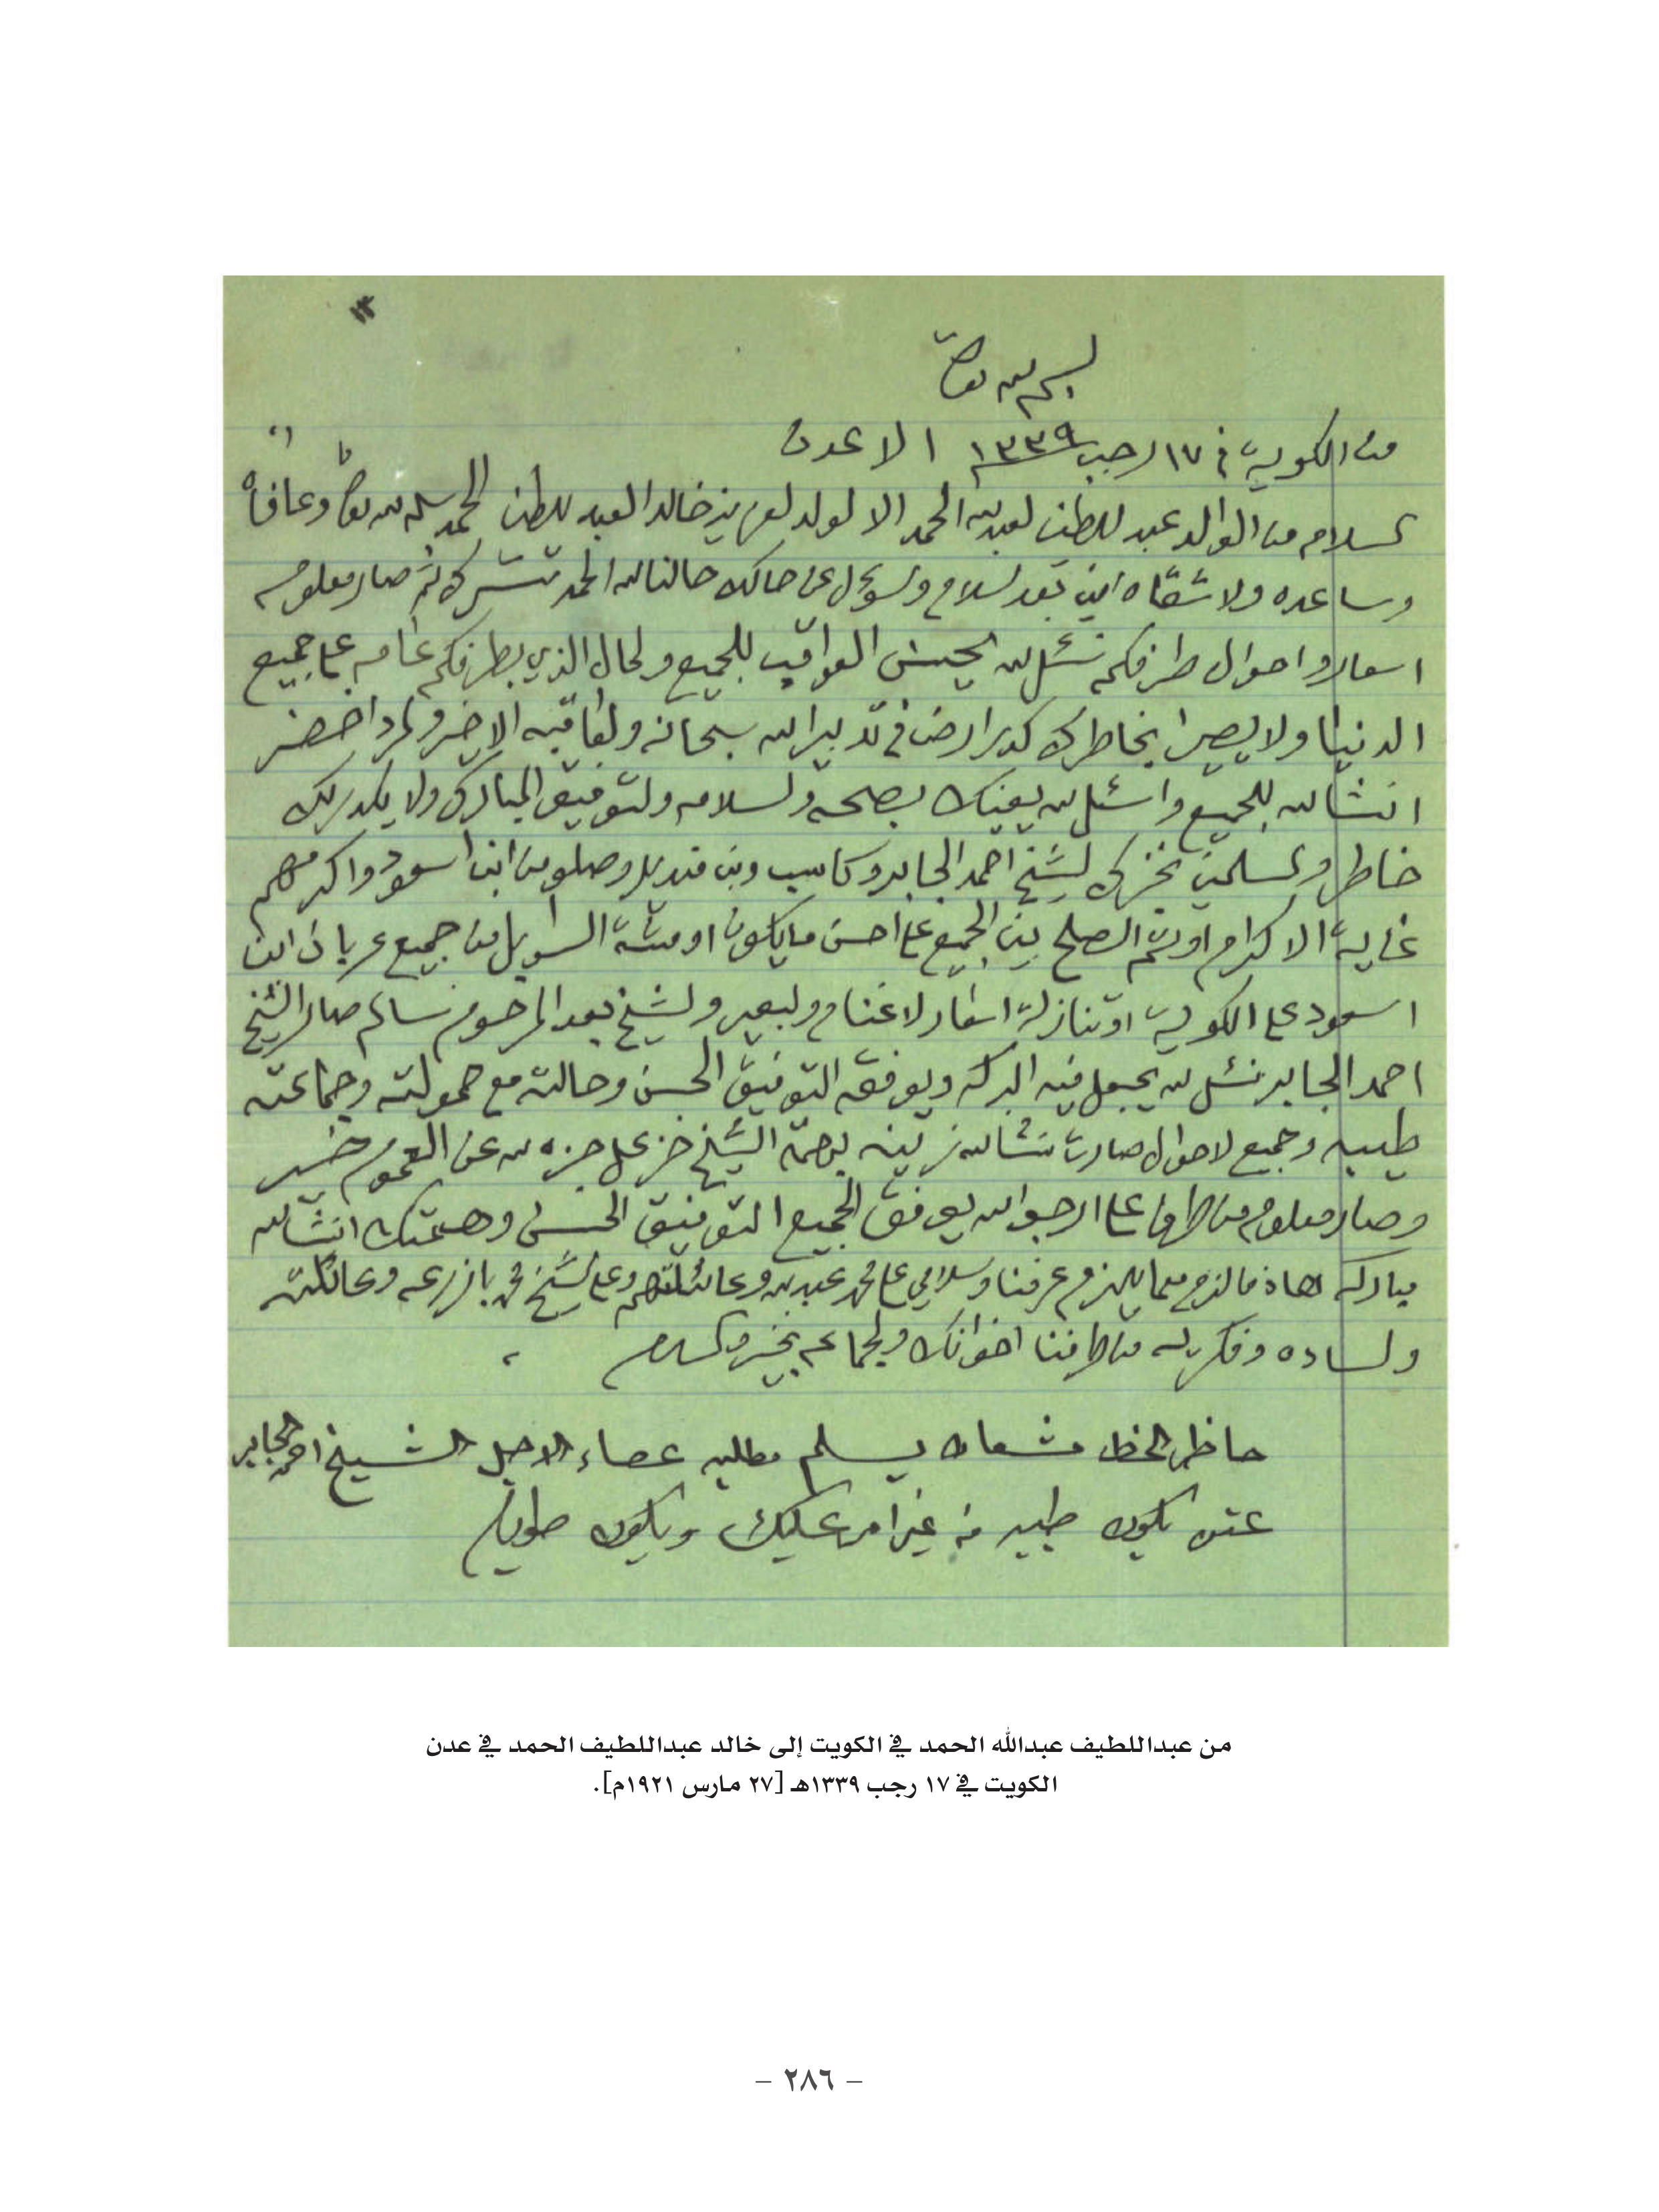 ١٣
بسم الله تعالى
من الكويت في ١٧ رجب ١٣٣٩ الا عدن
السلام من الوالد عبد اللطيف العبد الله الحمد الا الولد العزيز خالد العبد اللطيف الحمد سلمه الله تعالى وعافاه
وساعده ولا شقاه امين بعد السلام والسؤل عن حالك حالنا لله الحمد تسرك ثم صار معلوم
اسعار واحوال طرفكم نسئل الله يحسن العواقب للجميع والحال الذي بطرفكم عامه على جميع
الدنيا ولا يصير ابخاطرك كدر ارض في تدبير الله سبحانه والعاقبه الاخير والمرد احضر
انشالله للجميع واسئل الله يعينك بصحه والسلامه والتوفيق المبارك ولا يكدر لك
خاطر والمسلمين نخبرك الشيخ احمد الجابر وكاسب وبن منديل وصلو من ابن اسعود واكرمهم
غاية الاكرام او تم الصلح بين الجميع على احسن مايكون او مشة السوابل من جميع عربان ابن
اسعود على الكويت او تنازلة اسعار لاغنام والبعير والشيخ بعد المرحوم سالم صار الشيخ
احمد الجابر نسئل الله يجعل فيه البركه ويوفقه التوفيق الحسن وحالته مع حمولته وجماعته
طيبه وجميع لاحوال صارت نشالله زينه بهمة الشيخ خزعل جزه الله عن العموم خير
وصار معلوم من طرف علي ارجو الله يوفق الجميع التوفيق الحسن وهمتك انشالله
مباركه هاذ مالزم مما يلزم عرفنا وسلامي على محمد عبدالله وعائلتهم وعلى الشيخ محمد بازرعه وعائلته
والساده وفكريه من طرفنا اخوانك والجماعه بخير والسلام
حاظر الخط مشعان يسلم مطلبه عصاء الاجل الشيخ احمد الجابر
عسى تكون طيبه من غير امر عليك وتكون طويله
من عبداللطيف عبدالله الحمد في الكويت إلى خالد عبداللطيف الحمد في عدن
الكويت في ١٧ رجب ١٣٣٩هـ [٢٧ مارس ١٩٢١م].
– ٢٨٦ –